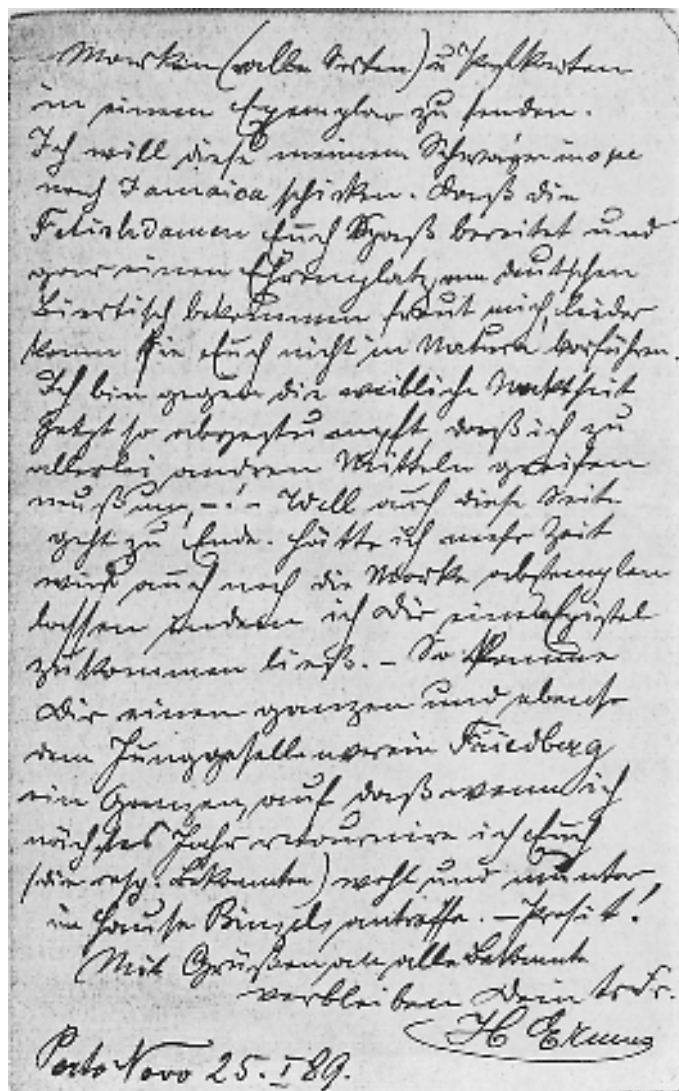 Marken (alle Sorten) u Postkarten
in einem Exemplar zu senden.
Ich will diese meinem Schwager
nach Jamaica schicken. Daß die
Fetischdamen Euch Spaß bereitet und
gar einen Ehrenplatz am deutschen
Biertisch bekommen freut mich, leider
kann sie Euch nicht in Natura vorführen.
Ich bin gegen die weibliche Nacktheit
jetzt so abgestumpft, daß ich zu
allerlei andren Mitteln greifen
muß um, - ! - Well auch diese Seite
geht zu Ende. Hätte ich mehr Zeit
würd auch noch die Marke abstempeln
lassen indem ich Dir eine Epistel
zukommen ließ. - So komme
Dir einen ganzen und ebenso
dem Junggesellenverein Friedberg
ein Ganzen, auf daß wenn ich
nächstes Jahr retournire ich Euch
(die resp. Bekannten) wohl und munter,
im Hause antreffe. - Prosit!
Mit Grüßen an alle Bekannte
verbleiben Dein
H
Porto Novo 25. I 89.